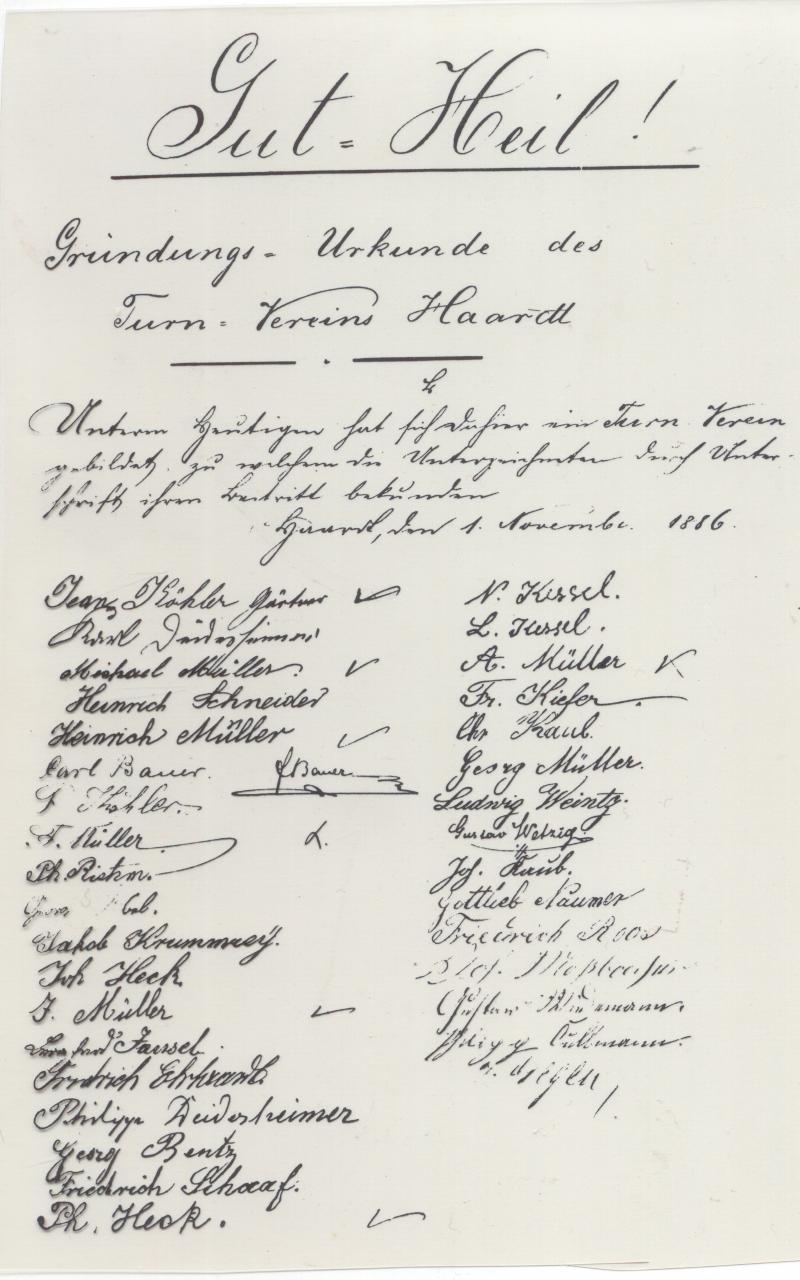 Gut = Heil!
Gründungs = Urkunde des
Turn = Vereins Haardt
Unterm Heutigen hat sich dahier ein Turn Verein
gebildet, zu welchem die Unterzeichneten durch Unter-
schrift ihren Beitritt bekunden
Haardt, den 1. Novembr. 1886.
Jean Köhler Gärtner
Karl Deidesheimer
Michael Müller.
Heinrich Schneider
Heinrich Müller
Carl Bauer. J Bauer
Köhler.
F. Müller
Ph. Riehm.
Georg
Jakob Krummrey.
Joh Heck
J. Müller
Fassel.
Friedrich Ehrhardt.
Philipp Deidesheimer
Georg Bentz
Friedrich Schaaf.
Ph. Heck.
N. Kessel.
L. Kessel.
A. Müller
Fr. Kiefer.
Chr Kaub.
Georg Müller.
Ludwig Weintz.
Gustav Wetzig.
Joh. Kaub.
Gottlieb Naumer
Friedrich Roos
Gustav
Cullmann.